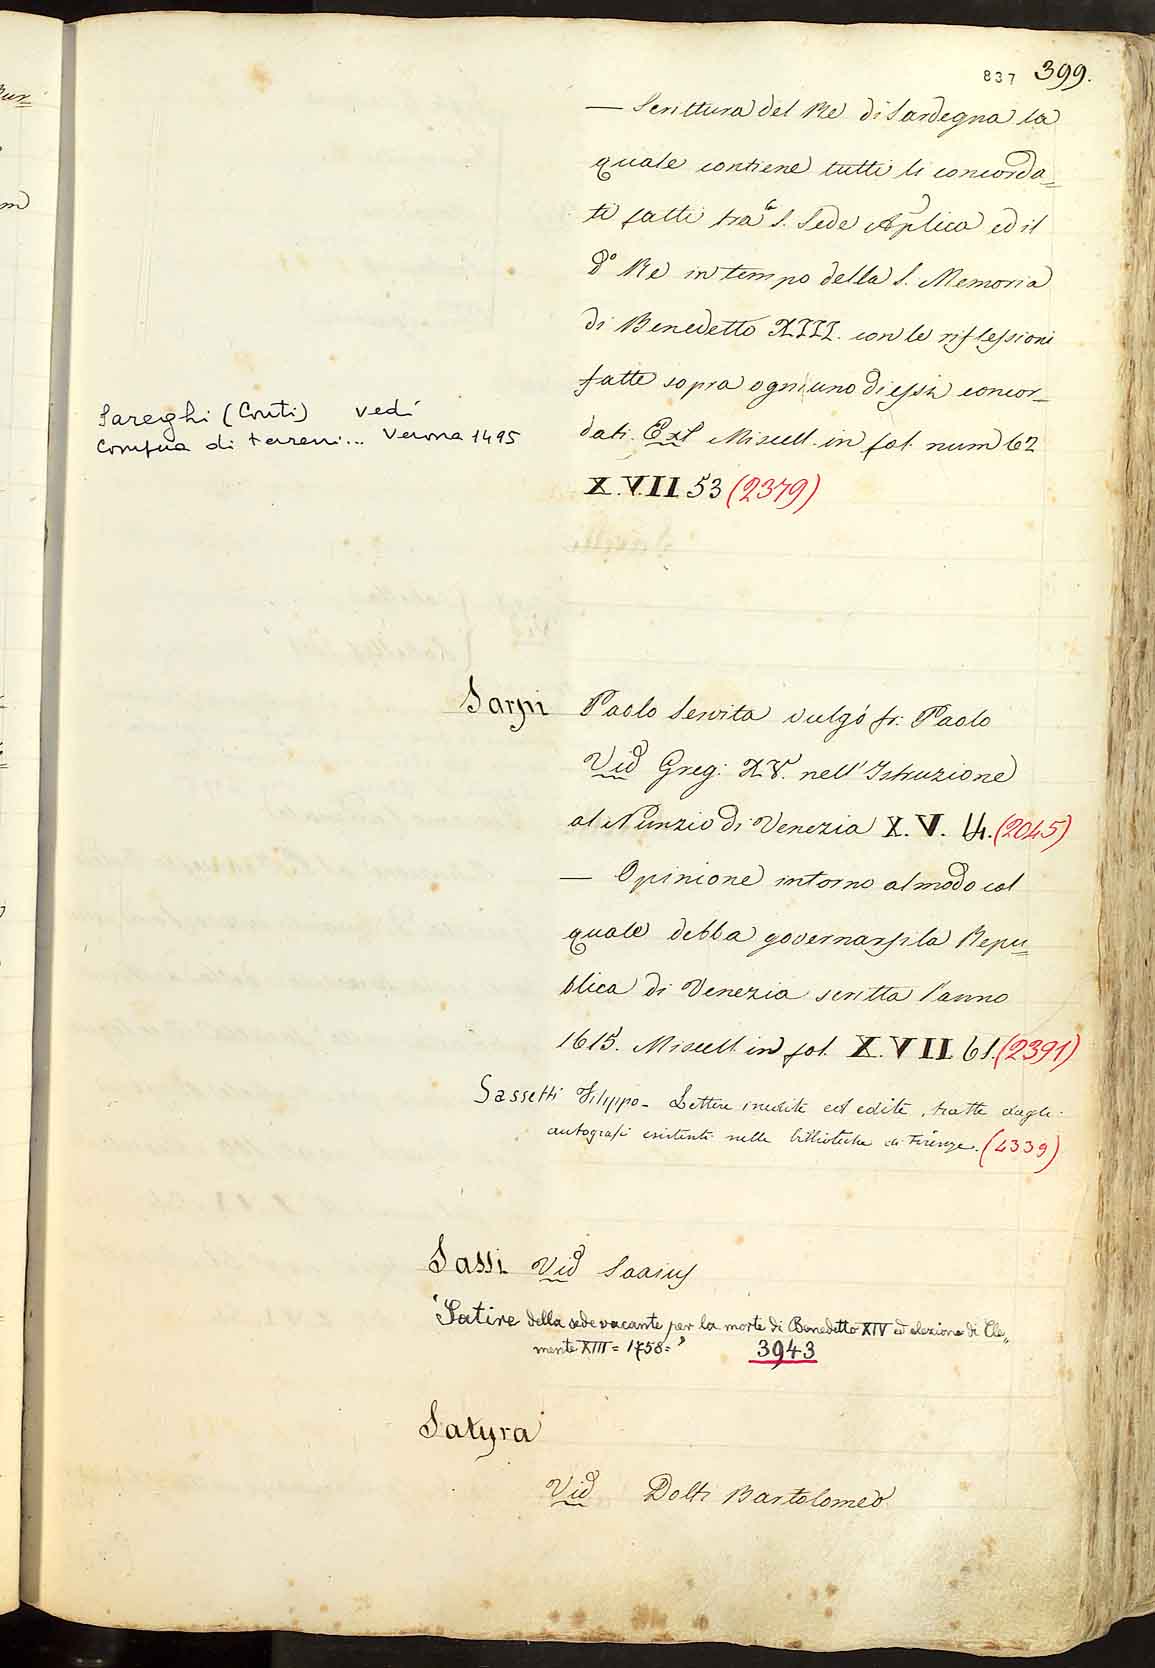 837 399.
— Scrittura del Re di Sardegna la
quale contiene tutti li concorda=
ti fatti tra la S. Sede Aplica ed il
do Re in tempo della S. Memoria
di Benedetto XIII. con le riflessioni
fatte sopra ogni uno di essi concor=
dati. Ext Miscell. in fol. num 62
X.VII 53 (2379)
Sareghi (Conti) vedi
Compra di terreni... Verona 1495
Sarpi Paolo Servita vulgò fr. Paolo
Vid Greg: XV. nell'Istruzione
al Nunzio di Venezia X. V. 14. (2045)
— Opinione intorno al modo col
quale debba governarsi la Repu=
blica di Venezia scritta l'anno
1615. Miscell. in fol. X.VII 61. (2391)
Sassetti Filippo - Lettere inedite ed edite, tratte dagli
autografi esistenti nelle biblioteche di Firenze. (4339)
Sassi Vid Saxius
"Satire della sede vacante per la morte di Benedetto XIV ed elezione di Cle=
mente XIII = 1758=" 3943
Satyra
Vid Dolti Bartolomeo